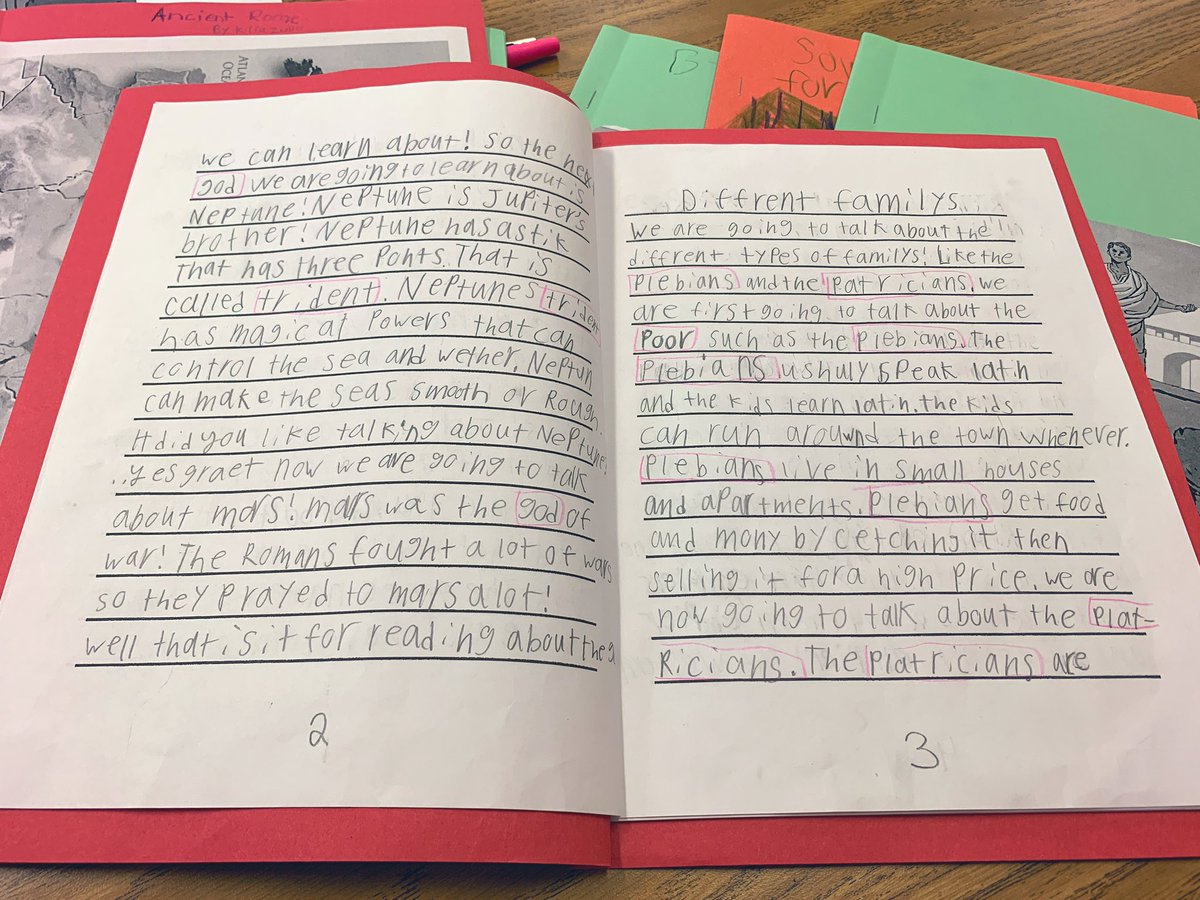 Ancient Rome
By
ATLAN
OCE
we can learn about! So the nex
god we are going to learn about is
Neptune! Neptune is Jupiter's
brother! Neptune has a stik
That has three Ponts. That is
called trident. Neptunes triden
has magical Powers that can
control the sea and wether. Neptun
can make the seas smooth or Rough.
H did you like talking about Neptune!
..yes graet now we are going to talk
about mars! mars was the god of
war! The Romans fought a lot of wars
so they prayed to mars a lot!
well that is it for reading about the g
2
Diffrent familys
We are going to talk about the
diffrent types of familys! Like the
Plebians and the patricians. we
are first going to talk about the
Poor such as the Plebians. The
Plebians ushuly speak latin
and the kids learn latin. the kids
can run arouwnd the town whenever.
Plebians live in small houses
and apartments. Plebians get food
and mony by cetching it then
selling it for a high Price. we are
now going to talk about the Plat-
Ricians. The Platricians are
3
B
Sov
for